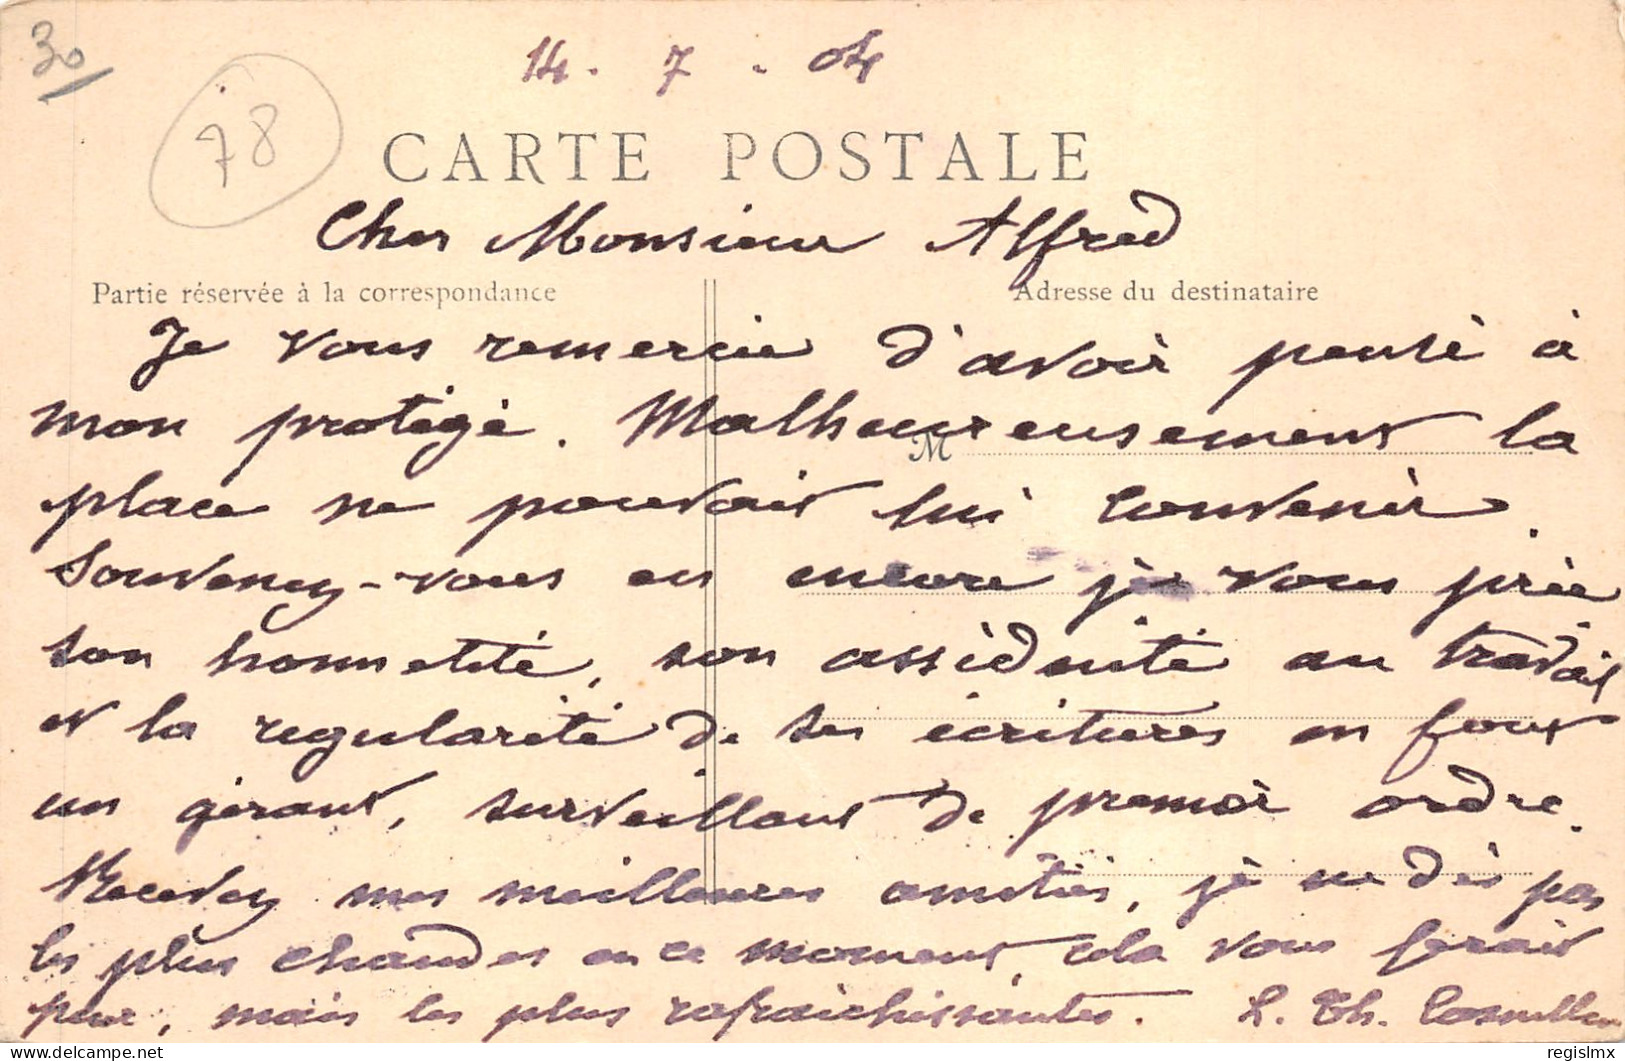 30
14 - 7 - 04
78
CARTE POSTALE
Cher Monsieur Alfred
Partie réservée à la correspondance
Adresse du destinataire
Je vous remercie d'avoir pensé à
mon protégé. Malheureusement la
M
place ne pouvait lui convenir.
Souvenez-vous en encore je vous prie
son honnetété, son assiduité au travail
et la regularité de ses écritures en font
un gérant, surveillant de premier ordre.
Recevez mes meilleures amitiés, je ne dis pas
les plus chaudes en ce moment, cela vous ferait
peur, mais les plus rafraichissantes. L. Th.
delcampe.net
regislmx